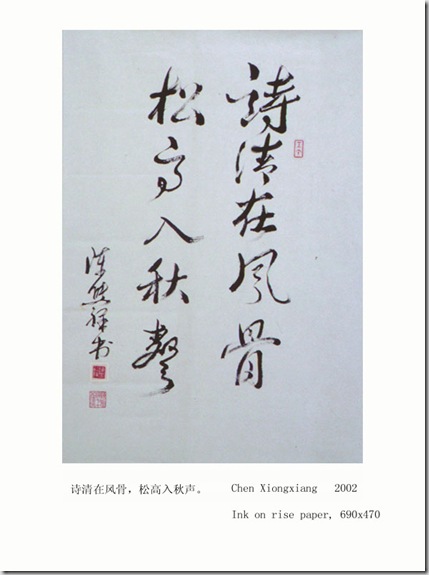 詩清在風骨
松高入秋聲
陳熊祥书
诗清在风骨，松高入秋声。
Chen Xiongxiang 2002
Ink on rise paper, 690x470